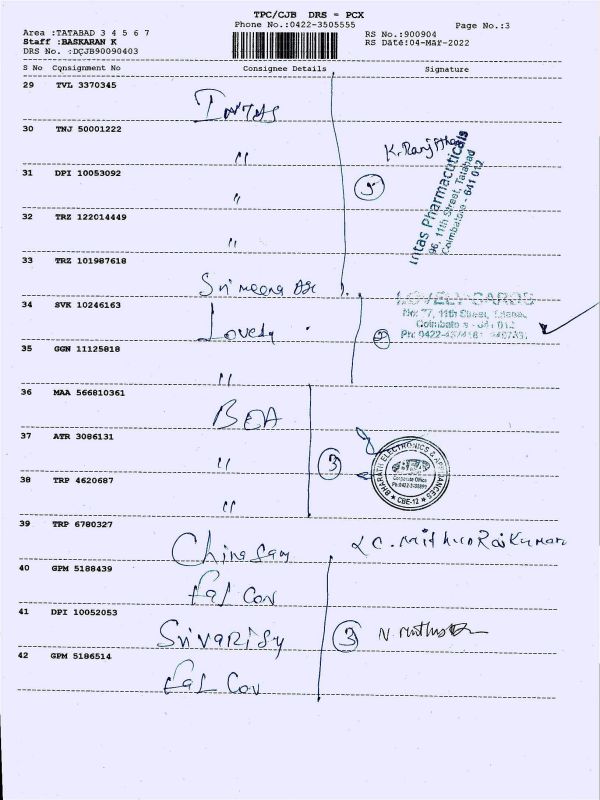 TPC/CJB DRS = PCX
Phone No.:0422-3505555
Page No.:3
Area :TATABAD 3 4 5 6 7
Staff :BASKARAN K
DRS No. :DCJB90090403
RS No.:900904
RS Date:04-Mar-2022
S No Consignment No Consignee Details Signature
29 TVL 3370345
INTAS
30 TNJ 50001222
"
K. Ranjitha
31 DPI 10053092
"
5
Intas Pharmaceuticals
96, 11th Street, Tatabad
Coimbatore - 641 012
32 TRZ 122014449
"
33 TRZ 101987618
Sri meena
34 SVK 10246163
Lovely
LOVELY CARDS
No: 77, 11th Street,
Coimbatore - 641 012
35 GGN 11125818
"
2
36 MAA 566810361
BEA
37 ATR 3086131
"
3
BHARATH ELECTRONICS & APPLIANCES
BEA
Corporate Office
CBE-12
38 TRP 4620687
"
39 TRP 6780327
40 GPM 5188439
Fal Con
41 DPI 10052053
3
42 GPM 5186514
Fal Con